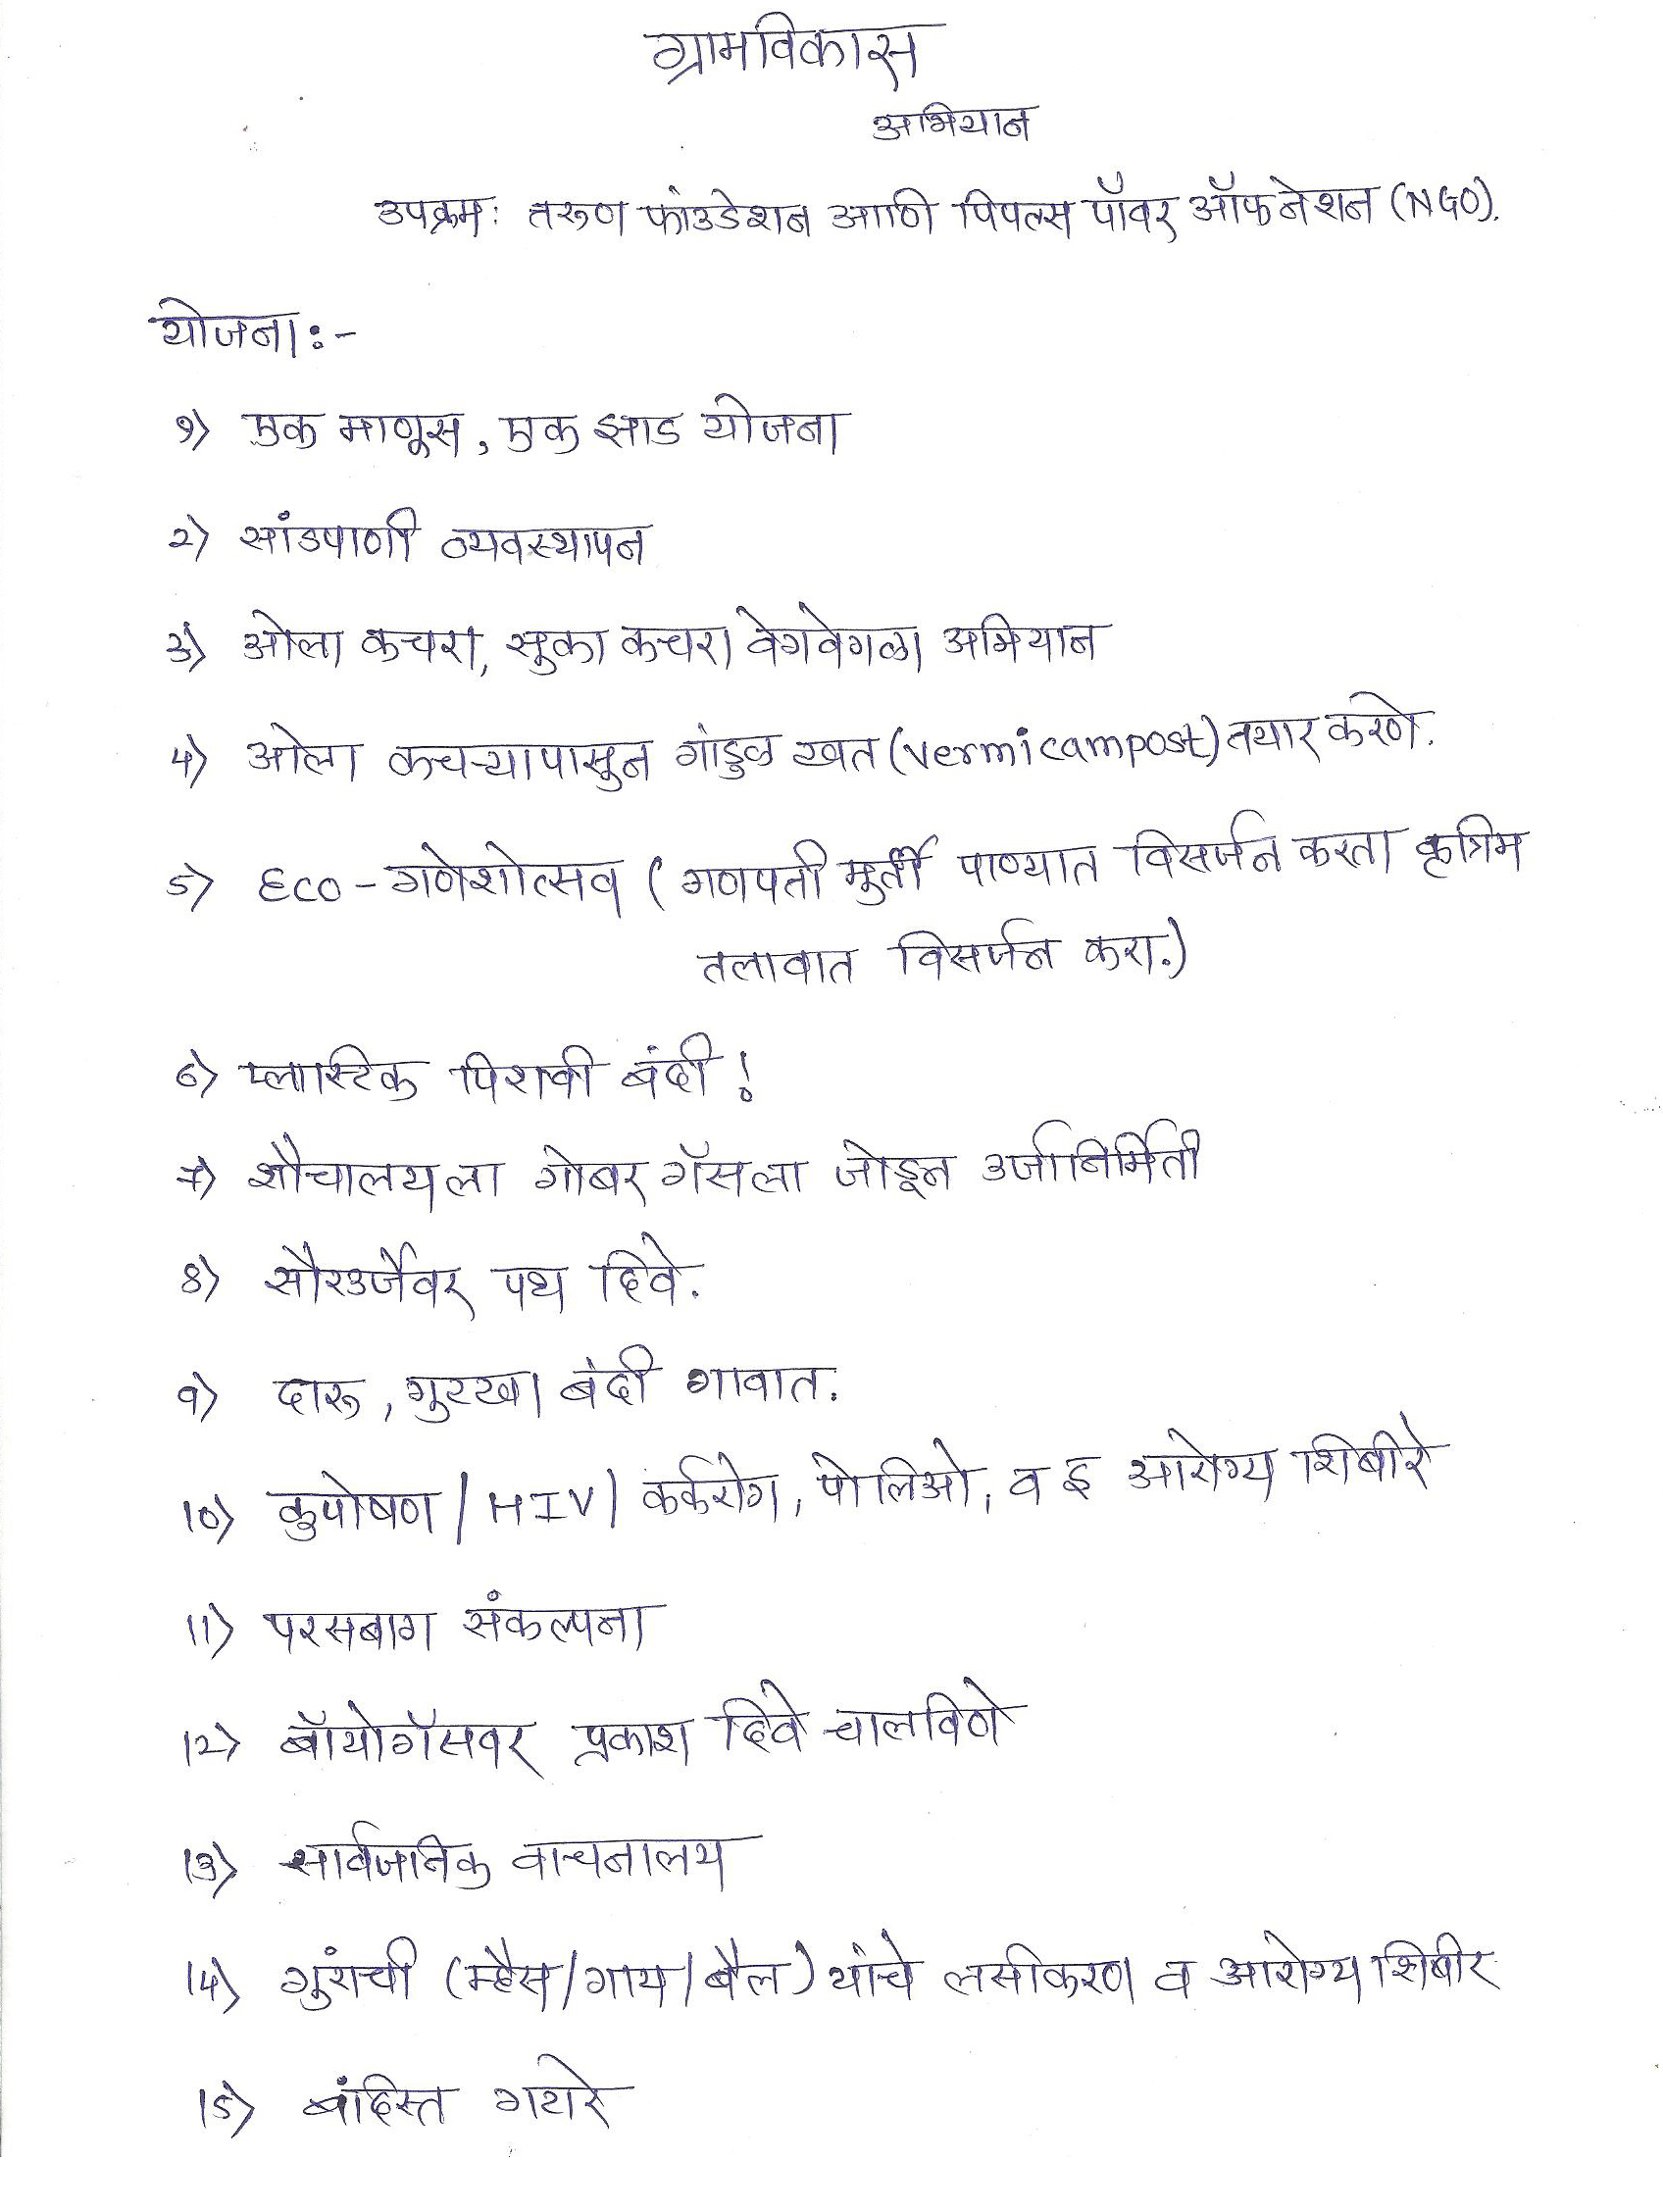 ग्रामविकास
अभियान
उपक्रम: तरुण फांउडेशन आणि पिपल्स पॉवर ऑफ नेशन (NGO).
योजना:-
१) एक माणूस, एक झाड योजना
२) सांडपाणी व्यवस्थापन
३) ओला कचरा, सुका कचरा वेगवेगळा अभियान
4) ओला कचऱ्यापासुन गांडुळ खत (vermicampost) तयार करणे.
5) Eco-गणेशोत्सव ( गणपती मुर्ती पाण्यात विसर्जन करता कृत्रिम
तलावात विसर्जन करा.)
6) प्लास्टिक पिशवी बंदी !
7) शौचालयला गोबर गॅसला जोडून उर्जानिर्मिती
8) सौरउर्जेवर पथ दिवे.
9) दारू, गुटखा बंदी गावात.
10) कुपोषण / HIV / कर्करोग, पोलिओ, व इ आरोग्य शिबीरे
11) परसबाग संकल्पना
12) बॉयोगॅसवर प्रकाश दिवे चालविणे
13) सार्वजनिक वाचनालय
14) गुरांची (म्हैस/गाय/बैल) यांचे लसीकरण व आरोग्य शिबीर
15) बांदिस्त गटारे